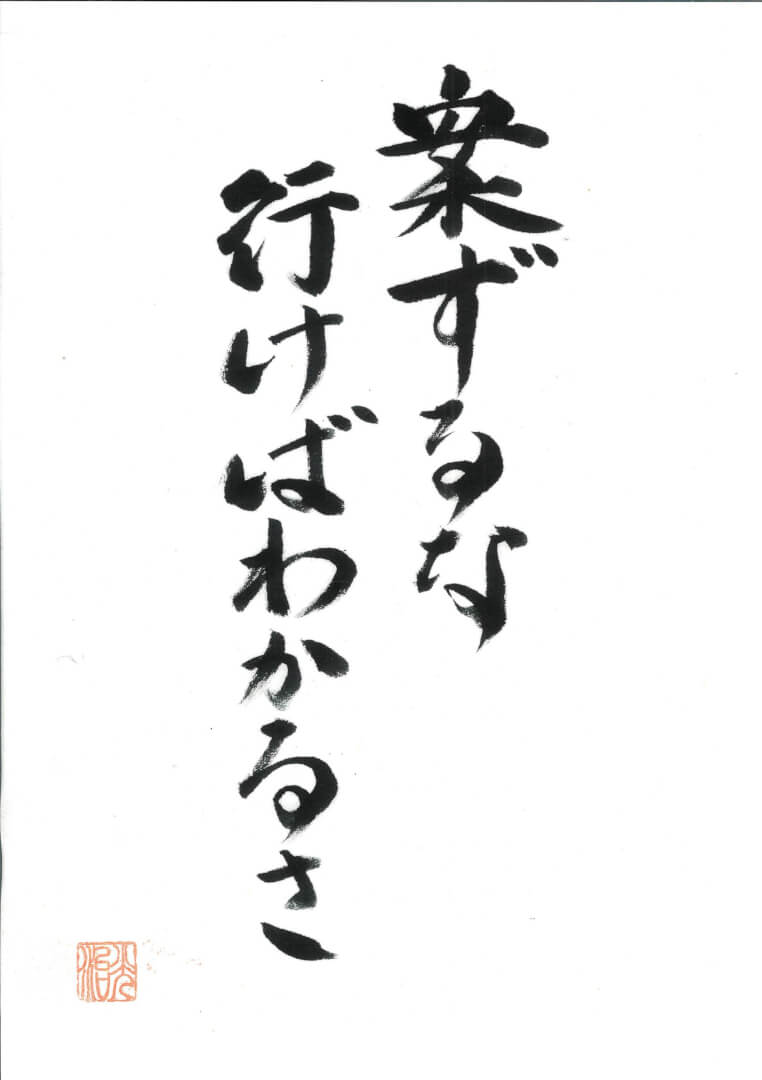 案ずるな
行けばわかるさ